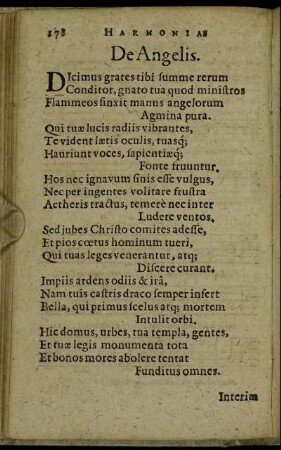 278 HARMONIAE
De Angelis.
DIcimus grates tibi summe rerum
Conditor, gnato tua quod ministros
Flammeos finxit manus angelorum
Agmina pura.
Qui tuæ lucis radiis vibrantes,
Te vident lætis oculis, tuasq;
Hauriunt voces, sapientiæq;
Fonte fruuntur.
Hos nec ignavum sinis esse vulgus,
Nec per ingentes volitare frustra
Aetheris tractus, temerè nec inter
Ludere ventos.
Sed jubes Christo comites adesse,
Et pios cœtus hominum tueri,
Qui tuas leges venerantur, atq;
Discere curant.
Impiis ardens odiis & irâ,
Nam tuis castris draco semper infert
Bella, qui primus scelus atq; mortem
Intulit orbi.
Hic domus, urbes, tua templa, gentes,
Et tuæ legis monumenta tota
Et bonos mores abolere tentat
Funditus omnes.
Interim